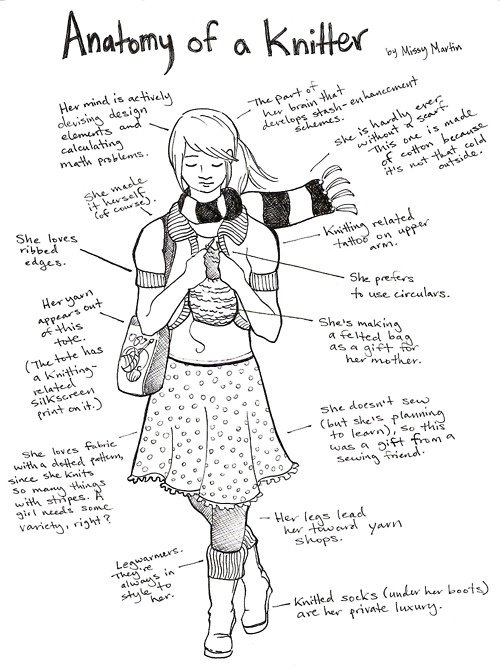 Anatomy of a Knitter
by Missy Martin
Her mind is actively
devising design
elements and
calculating
math problems.
The part of
her brain that
develops stash-enhancement
schemes.
She is hardly ever
without a scarf.
This one is made
of cotton because
it's not that cold
outside.
She made
it herself
(of course).
Knitting related
tattoo on upper
arm.
She loves
ribbed
edges.
She prefers
to use circulars.
Her yarn
appears out
of this
tote.
(The tote has
a knitting-
related
silkscreen
print on it.)
She's making
a felted bag
as a gift for
her mother.
She doesn't sew
(but she's planning
to learn), so this
was a gift from a
sewing friend.
She loves fabric
with a dotted pattern,
since she knits
so many things
with stripes. A
girl needs some
variety, right?
Her legs lead
her toward yarn
shops.
Legwarmers.
They're
always in
style to
her.
Knitted socks (under her boots)
are her private luxury.